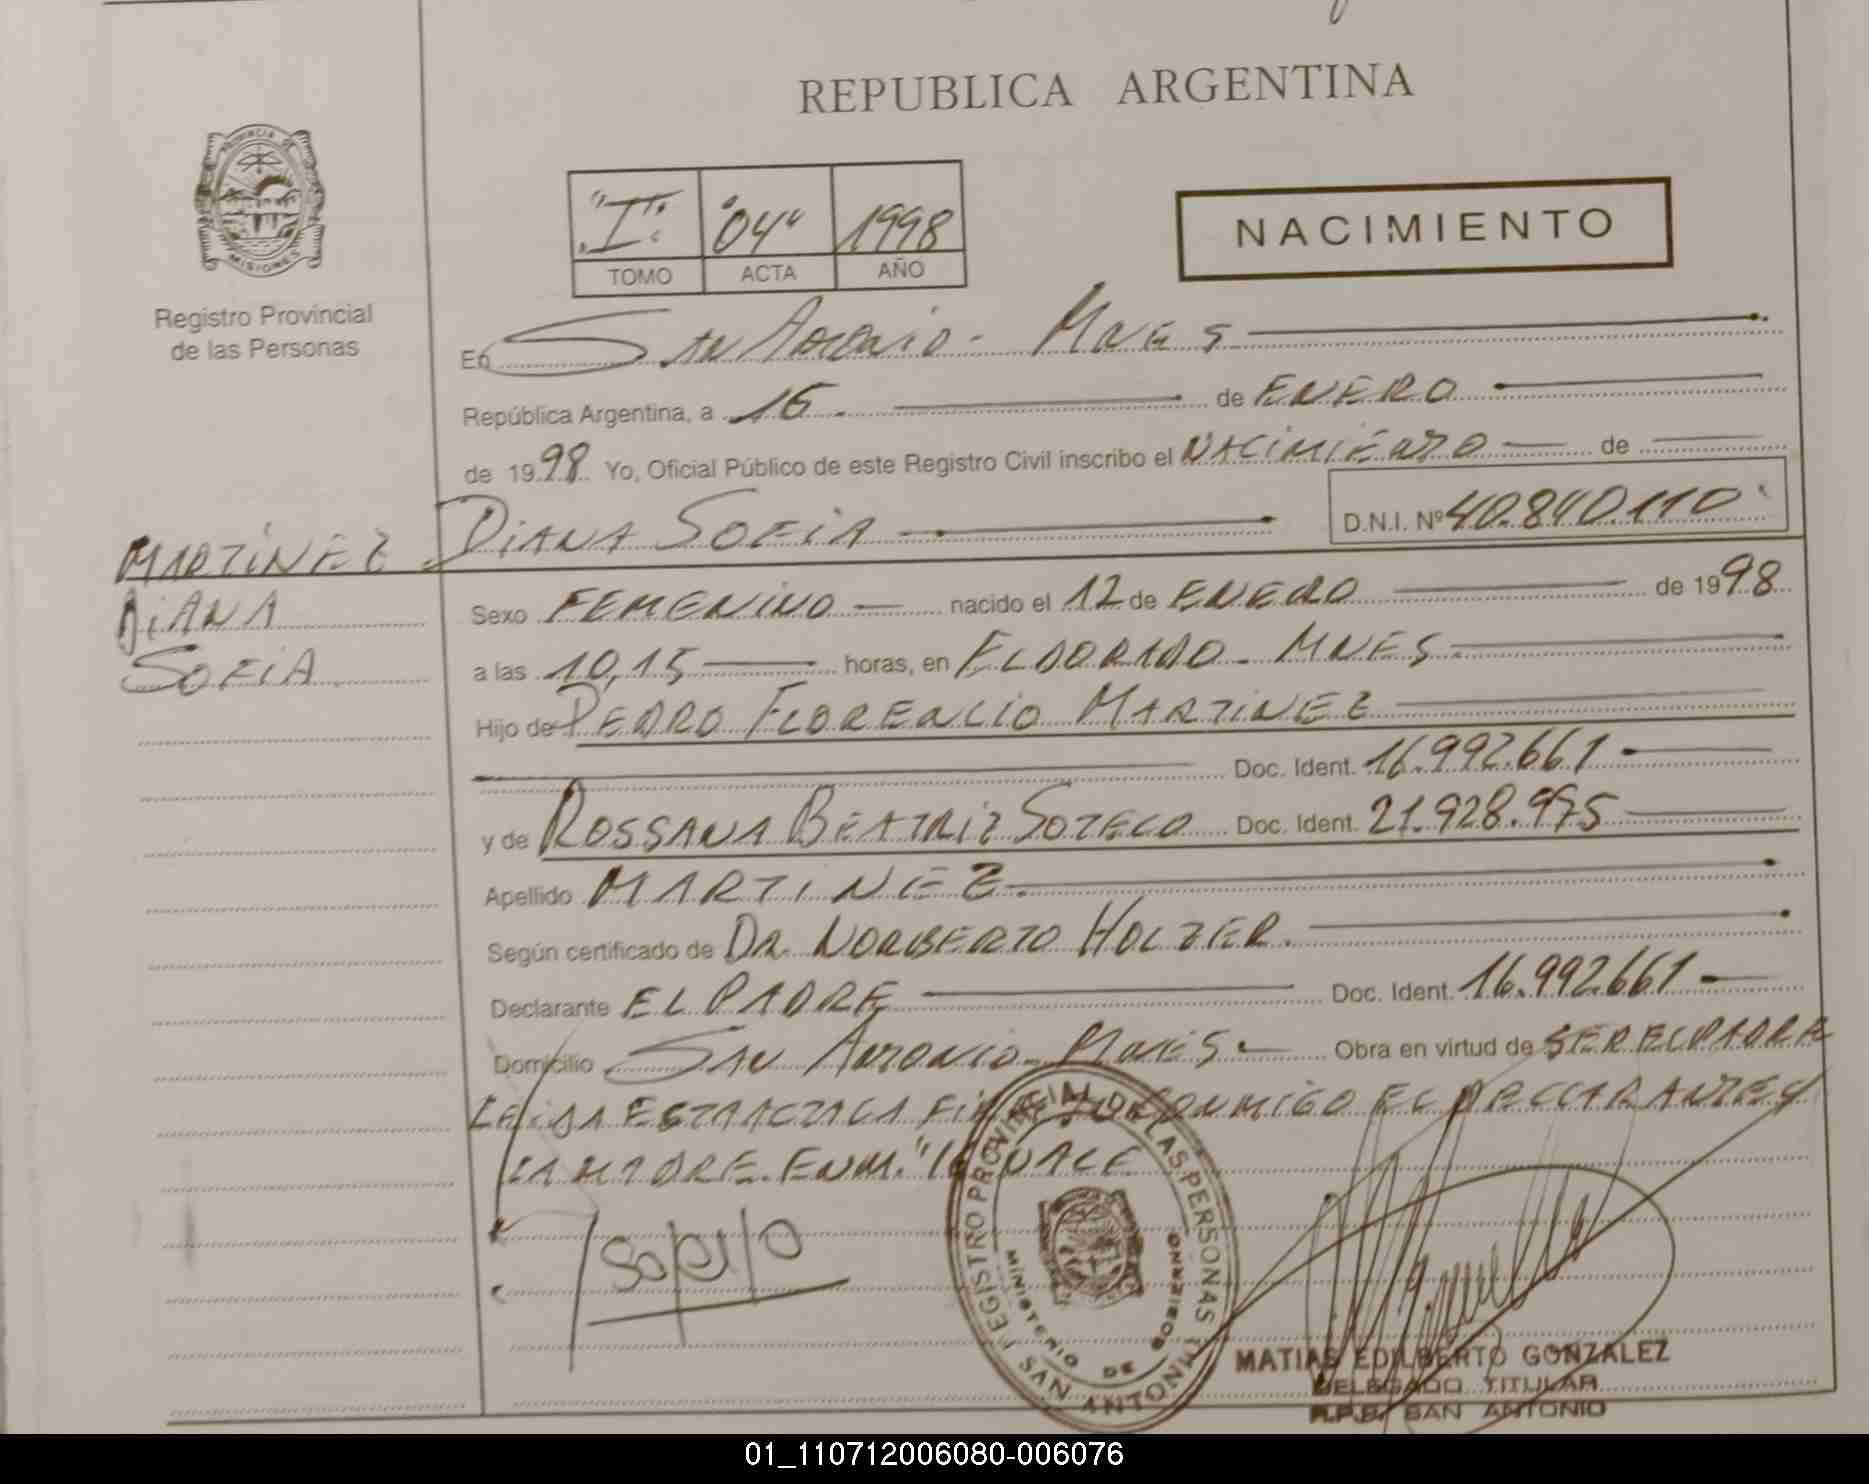 REPUBLICA ARGENTINA
PROVINCIA DE
MISIONES
Registro Provincial
de las Personas
"I" "04" 1998
TOMO ACTA AÑO
NACIMIENTO
En San Antonio - Mnes
República Argentina, a 16 de ENERO
de 1998 Yo, Oficial Público de este Registro Civil inscribo el NACIMIENTO de
DIANA SOFIA D.N.I. Nº 40.840.110
MARTINEZ
DIANA
SOFIA
Sexo FEMENINO nacido el 12 de ENERO de 1998
a las 10,15 horas, en ELDORADO - MNES
Hijo de PEDRO FLORENCIO MARTINEZ
Doc. Ident. 16.992.661
y de ROSSANA BEATRIZ SOTELO Doc. Ident. 21.928.975
Apellido MARTINEZ
Según certificado de DR. NORBERTO HOLZER.
Declarante EL PADRE Doc. Ident. 16.992.661
Domicilio SAN ANTONIO - Mnes Obra en virtud de SER EL PADRE
LEIDA ESTA ACTA LA FIRMAN CONMIGO EL DECLARANTE Y
LA MADRE. ENM. "16" VALE
REGISTRO PROVINCIAL DE LAS PERSONAS
MINISTERIO DE GOBIERNO
SAN ANTONIO
MATIAS EDILBERTO GONZALEZ
DELEGADO TITULAR
R.P.P. SAN ANTONIO
01_110712006080-006076